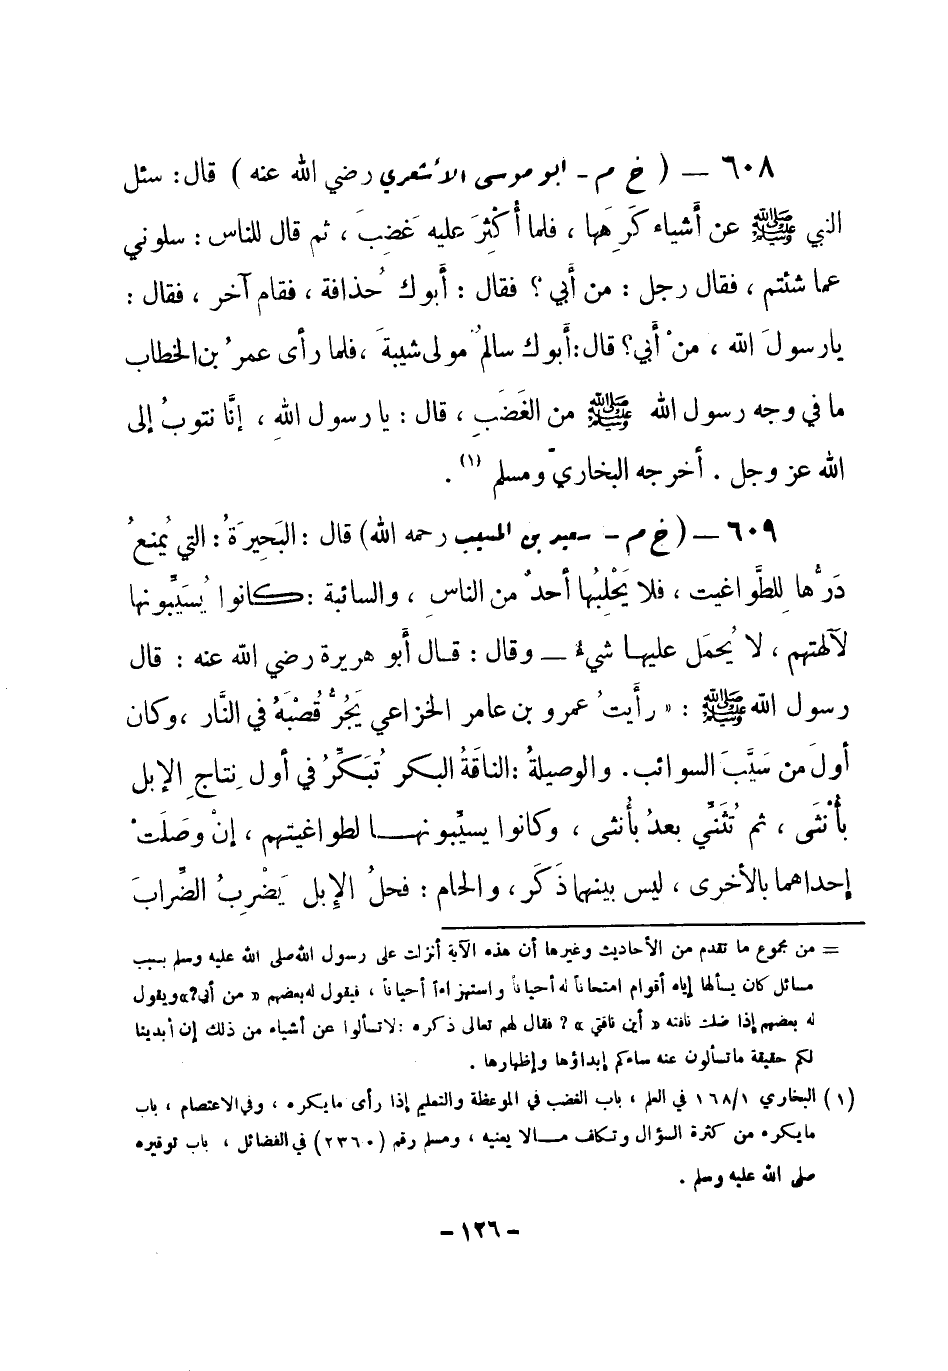 ٦٠٨ — ( خ م - أبو موسى الأشعري رضي الله عنه ) قال : سئل
النبي ﷺ عن أَشياء كَرِهَها ، فلما أُكْثِرَ عليه غَضِبَ ، ثم قال للناس : سلوني
عما شئتم ، فقال رجل : من أَبي ؟ فقال : أَبوك حُذافة ، فقام آخر ، فقال :
يارسولَ الله ، منْ أَبي؟ قال:أَبوك سالمٌ مولى شيبةَ ،فلما رأى عمرُ بن الخطاب
ما في وجه رسول الله ﷺ من الغَضَبِ ، قال : يا رسول اللهِ ، إنَّا نتوبُ إلى
الله عز وجل . أخرجه البخاريّ ومسلم (١) .
٦٠٩ — ( خ م - سعيد بن المسيب رحمه الله) قال : البَحِيرَةُ : التي يُمنعُ
دَرُّها لِلطَّواغيت ، فلا يَحْلِبُها أحدٌ من الناسِ ، والسائبة : كانوا يُسَيِّبونها
لآلهتهم ، لا يُحمَل عليها شيءٌ — وقال : قال أَبو هريرة رضي الله عنه : قال
رسول الله ﷺ : « رأَيتُ عمرو بن عامر الخزاعي يَجُرُّ قُصْبَهُ في النَّار ، وكان
أولَ من سَيَّبَ السوائب . والوصيلةُ :الناقَةُ البكر تُبَكِّرُ في أول نِتاجِ الإبل
بأُنْثَى ، ثم تُثَنِّي بعدُ بأُنثى ، وكانوا يسيِّبونها لطواغيتهم ، إنْ وصَلَتْ
إحداهما بالأخرى ، ليس بينهما ذَكَر ، والحام : فحلُ الإِبل يَضْرِبُ الضِّرابَ
= من مجموع ما تقدم من الأحاديث وغيرها أن هذه الآية أنزلت على رسول الله صلى الله عليه وسلم بسبب
مسائل كان يسألها إياه أقوام امتحاناً له أحياناً واستهزاءاً أحياناً ، فيقول له بعضهم « من أبي؟» ويقول
له بعضهم إذا ضلت ناقته « أين ناقتي » ؟ فقال لهم تعالى ذكره :لاتسألوا عن أشياء من ذلك إن أبدينا
لكم حقيقة ماتسألون عنه ساءكم إبداؤها وإظهارها .
(١) البخاري ١٦٨/١ في العلم ، باب الغضب في الموعظة والتعليم إذا رأى مايكره ، وفي الاعتصام ، باب
مايكره من كثرة السؤال وتكلف مالا يعنيه ، ومسلم رقم (٢٣٦٠) في الفضائل ، باب توقيره
صلى الله عليه وسلم .
- ١٢٦ -